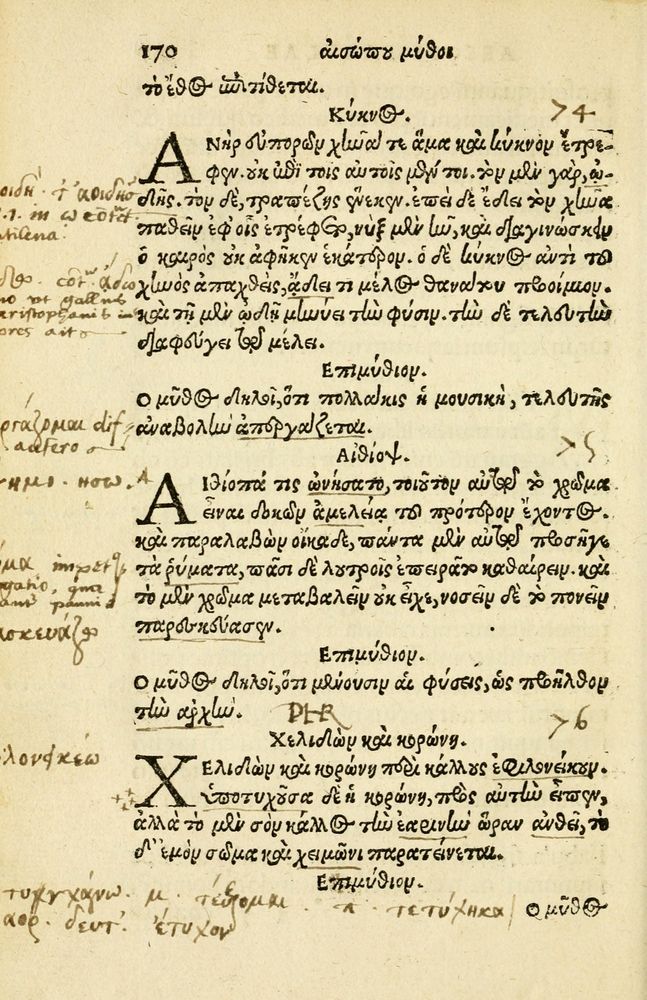 170 αἰσώπου μῦθοι
τὸ ἔθος ἀντιτίθεται.
Κύκνος. 74
ΑΝὴρ εὐπορῶν χῆνά τε ἅμα καὶ κύκνον ἔτρε-
φεν. οὐκ ἐπὶ τοῖς αὐτοῖς μέντοι. τὸν μὲν γὰρ, ὠ-
δῆς. τὸν δὲ, τραπέζης ἕνεκεν. ἐπεὶ δὲ ἔδει τὸν χῆνα
παθεῖν ἐφ' οἷς ἐτρέφετο, νὺξ μὲν ἦν, καὶ διαγινώσκειν
ὁ καιρὸς οὐκ ἀφῆκεν ἑκάτερον. ὁ δὲ κύκνος ἀντὶ τοῦ
χηνὸς ἀπαχθεὶς, ἄδει τι μέλος θανάτου προοίμιον.
καὶ τῇ μὲν ὠδῇ μηνύει τὴν φύσιν. τὴν δὲ τελευτὴν
διαφεύγει τῷ μέλει.
Επιμύθιον.
Ο μῦθος δηλοῖ, ὅτι πολλάκις ἡ μουσικὴ, τελευτῆς
ἀναβολὴν ἀπεργάζεται.
Αἰθίοψ. 75
ΑΙθίοπά τις ὠνήσατο, τοιοῦτον αὐτῷ τὸ χρῶμα
εἶναι δοκῶν ἀμελείᾳ τοῦ πρότερον ἔχοντος.
καὶ παραλαβὼν οἴκαδε, πάντα μὲν αὐτῷ προσῆγε
τὰ ῥύματα, πᾶσι δὲ λουτροῖς ἐπειρᾶτο καθαίρειν. καὶ
τὸ μὲν χρῶμα μεταβαλεῖν οὐκ εἶχε, νοσεῖν δὲ τὸ πονεῖν
παρεσκεύασεν.
Επιμύθιον.
Ο μῦθος δηλοῖ, ὅτι μένουσιν αἱ φύσεις, ὡς προῆλθον
τὴν ἀρχήν.
Χελιδὼν καὶ κορώνη. 76
ΧΕλιδὼν καὶ κορώνη περὶ κάλλους ἐφιλονείκουν.
ὑποτυχοῦσα δὲ ἡ κορώνη, πρὸς αὐτὴν εἶπεν,
ἀλλὰ τὸ μὲν σὸν κάλλος τὴν ἐαρινὴν ὥραν ἀνθεῖ, τὸ
δ' ἐμὸν σῶμα καὶ χειμῶνι παρατείνεται.
Επιμύθιον.
Ο μῦθος
τυγχάνω. μ. τεύξομαι π. τετύχηκα
αορ. δευτ. ἔτυχον